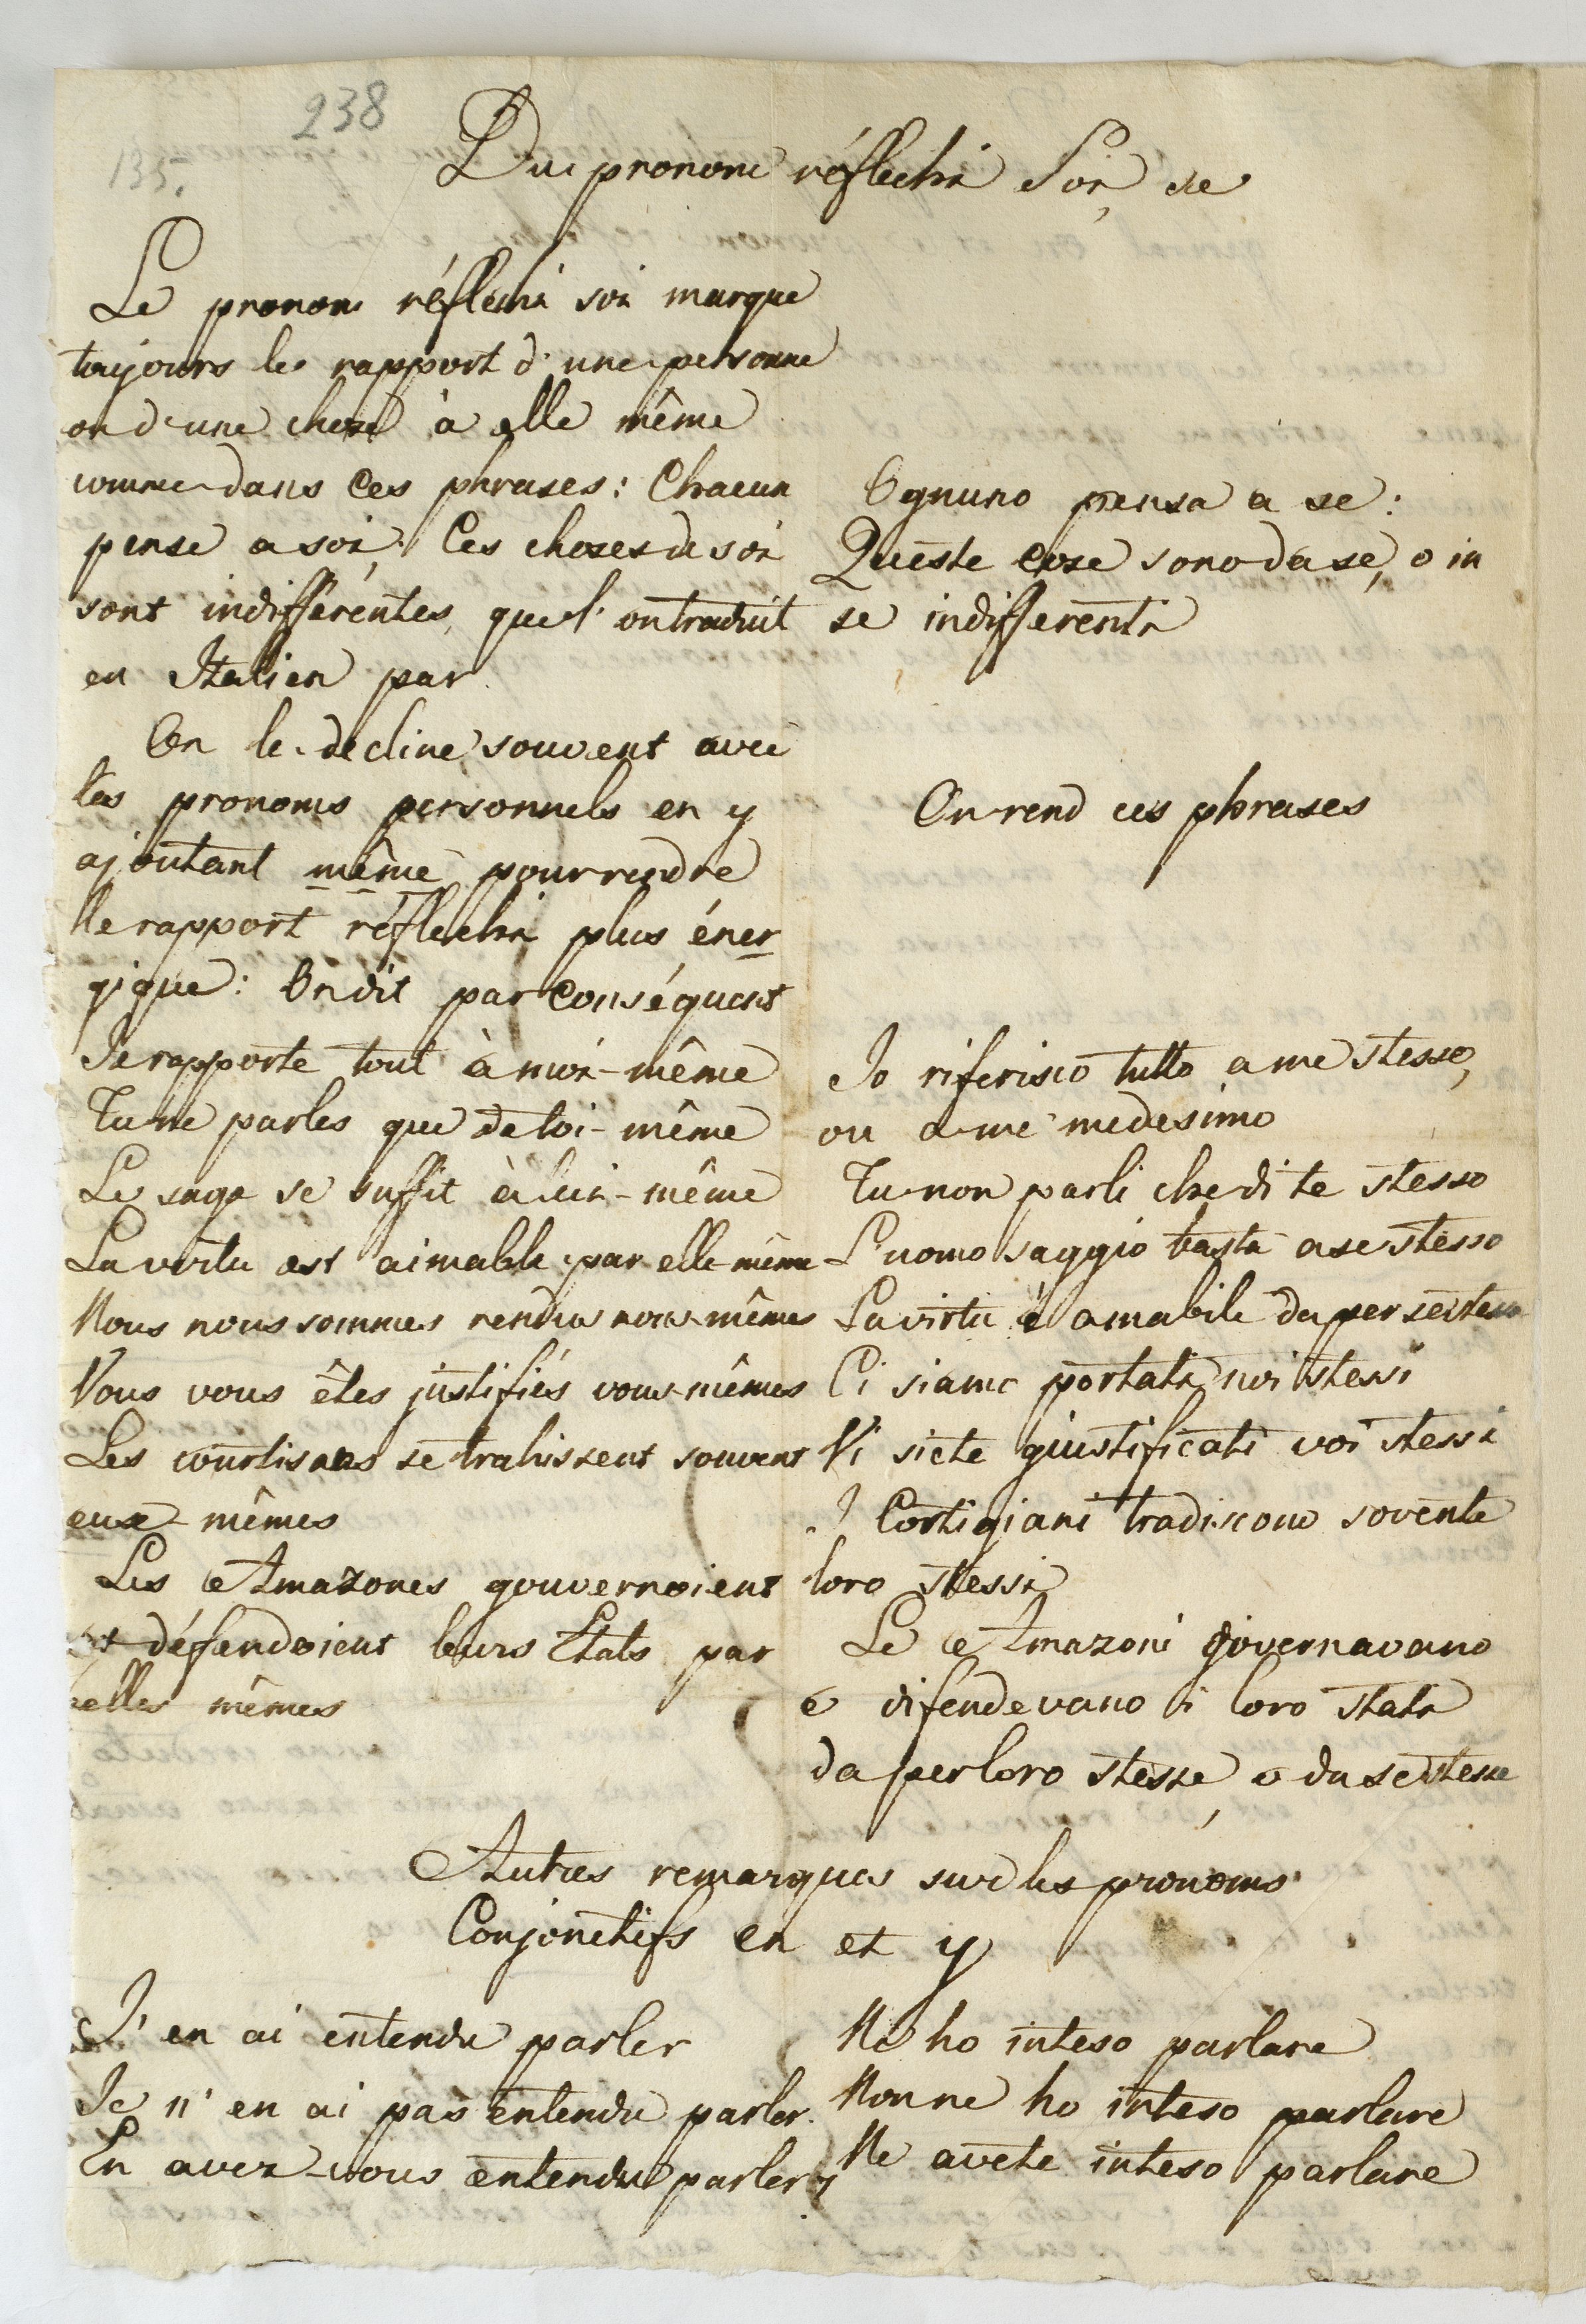 238
135.
Du pronom réflechi Soi, se
Le pronom réflechi soi marque
toujours le rapport d'une personne
ou d'une chose à elle même
comme dans ces phrases: Chacun
pense a soi, Ces choses de soi
sont indifférentes, que l'on traduit
en Italien par
On le décline souvent avec
les pronoms personnels en y
ajoutant même pour rendre
le rapport réflechi plus éner
gique: On dit par conséquent
Je rapporte tout à moi-même
Tu ne parles que de toi-même
Le sage se suffit à lui-même
La vertu est aimable par elle-même
Nous nous sommes rendus nous-mêmes
Vous vous êtes justifiés vous-mêmes
Les courtisans se trahissent souvent
eux-mêmes
Les Amazones gouvernoient
et défendoient leurs Etats par
elles mêmes
Ognuno pensa a se:
Queste cose sono da se, o in
se indifferenti
On rend ces phrases
Io riferisco tutto a me stesso,
ou a me medesimo
Tu non parli che di te stesso
L'uomo saggio basta a se stesso
La virtu è amabile da per se stessa
Ci siamo portati noi stessi
Vi siete giustificati voi stessi
I Cortigiani tradiscono sovente
loro stessi
Le Amazoni governavano
e difendevano i loro stati
da per loro stesse, o da se stesse
Autres remarques sur les pronoms
Conjonctifs en et y
J'en ai entendu parler
Je n'en ai pas entendu parler.
En avez-vous entendu parler?
Ne ho inteso parlare
Non ne ho inteso parlare
Ne avete inteso parlare